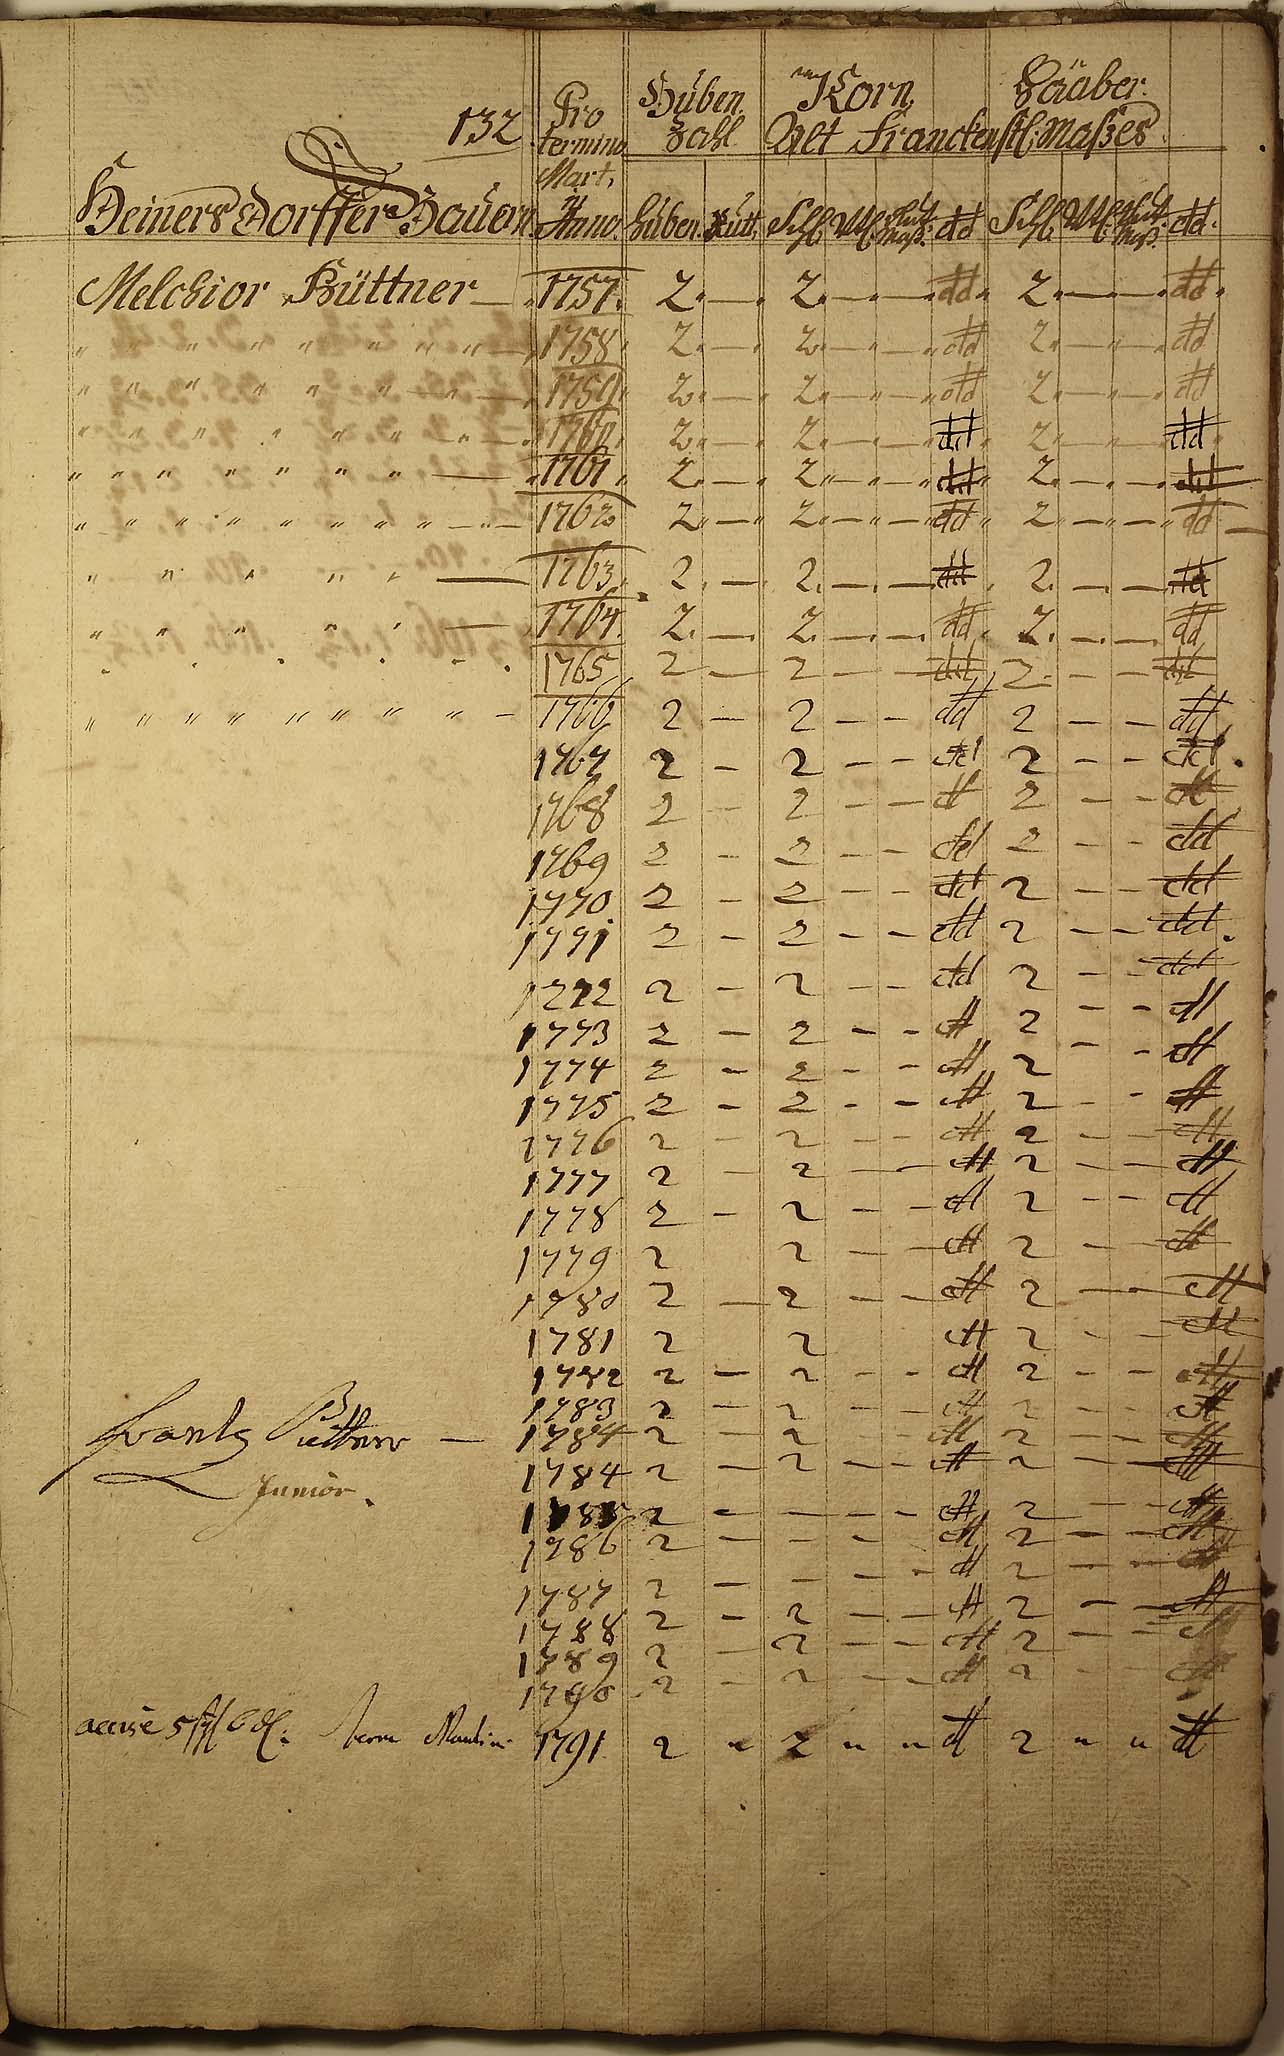 132
Pro termino Mart. Anno. Huben Zahl Korn Haaber.
Alt Franckenstl: Maßes
Heinersdorffer Bauern Huben. Rutt. Schl. Vtl. Schl. Vtl.
Melchior Büttner — 1757. 2. — 2. — — dd 2. — — dd
" " " " " " " " — 1758. 2. — 2. — — dd 2. — — dd
" " " " " " " — 1759. 2. — 2. — — dd 2. — — dd
" " " " " " " — 1760. 2. — 2. — — dd 2. — — dd
" " " " " " " " — 1761. 2. — 2. — — dd 2. — — dd
" " " " " " " " " — 1762. 2. — 2. — — dd 2. — — dd
" " " " " — 1763. 2. — 2. — — dd 2. — — dd
" " " " " — 1764. 2. — 2. — — dd 2. — — dd
" " " " " 1765 2 — 2 — dd 2 — — dd
" " " " " " " " — 1766 2 — 2 — — dd 2 — — dd
1767 2 — 2 — — dd 2 — — dd
1768 2 — 2 — — dd 2 — — dd
1769 2 — 2 — — dd 2 — — dd
1770 2 — 2 — — dd 2 — — dd
1771 2 — 2 — — dd 2 — — dd
1772 2 — 2 — — dd 2 — — dd
1773 2 — 2 — — dd 2 — — dd
1774 2 — 2 — — dd 2 — — dd
1775 2 — 2 — — dd 2 — — dd
1776 2 — 2 — — dd 2 — — dd
1777 2 — 2 — — dd 2 — — dd
1778 2 — 2 — — dd 2 — — dd
1779 2 2 — — dd 2 — — dd
1780 2 — 2 — — dd 2 — — dd
1781 2 2 dd 2 — — dd
1782 2 — 2 — — dd 2 — — dd
1783 2 — 2 — — dd 2 — — dd
Frantz Büttner — 1784 2 — 2 — — dd 2 — — dd
Junior. 1784 2 — 2 — — dd 2 — — dd
1785 2 — — — — dd 2 — — dd
1786 2 — — — — dd 2 — — dd
1787 2 — — — — dd 2 — — dd
1788 2 — 2 — — dd 2 — — dd
1789 2 — 2 — — dd 2 — — dd
1790 2 — 2 — — dd 2 — — dd
accise 1791. 2 " 2 " " dd 2 " " dd